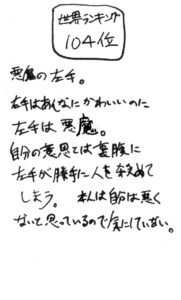 世界ランキング
104位
悪魔の左手。
右手はあんなにかわいいのに
左手は悪魔。
自分の意思とは裏腹に
左手が勝手に人を殺めて
しまう。本人は自分は悪く
ないと思っているので気にしていない。